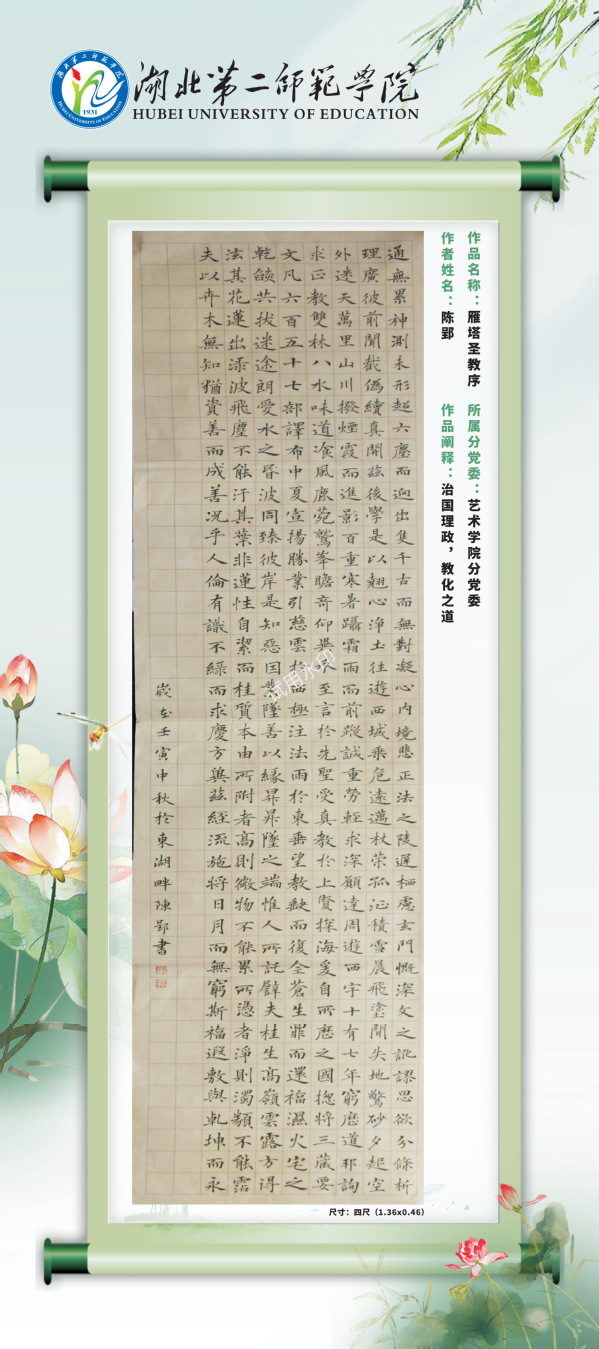 湖北第二師範學院
HUBEI UNIVERSITY OF EDUCATION
湖北第二师范学院
HUBEI UNIVERSITY OF EDUCATION
1931
作品名称：雁塔圣教序
所属分党委：艺术学院分党委
作者姓名：陈郢
作品阐释：治国理政，教化之道
通無累神測未形超六塵而迥出隻千古而無對凝心內境悲正法之陵遲栖慮玄門慨深文之訛謬思欲分條析
理廣彼前聞截偽續真開茲後學是以翹心淨土往遊西域乘危遠邁杖策孤征積雪晨飛塗間失地驚砂夕起空
外迷天萬里山川撥煙霞而進影百重寒暑躡霜雨而前蹤誠重勞輕求深願達周遊西宇十有七年窮歷道邦詢
求正教雙林八水味道飡風鹿菀鷲峯瞻奇仰異承至言於先聖受真教於上賢探海爰自所歷之國摠將三藏要
文凡六百五十七部譯布中夏宣揚勝業引慈雲於西極注法雨於東垂聖教缺而復全蒼生罪而還福濕火宅之
乾燄共拔迷途朗愛水之昏波同臻彼岸是知惡因業墜善以緣昇昇墜之端惟人所託譬夫桂生高嶺雲露方得
法其花蓮出淥波飛塵不能汙其葉非蓮性自潔而桂質本由所附者高則微物不能累所憑者淨則濁類不能霑
夫以卉木無知猶資善而成善況乎人倫有識不緣而求慶方冀茲經流施將日月而無窮斯福遐敷與乾坤而永
歲在壬寅中秋於東湖畔陳郢書
试用水印
尺寸：四尺（1.36x0.46）